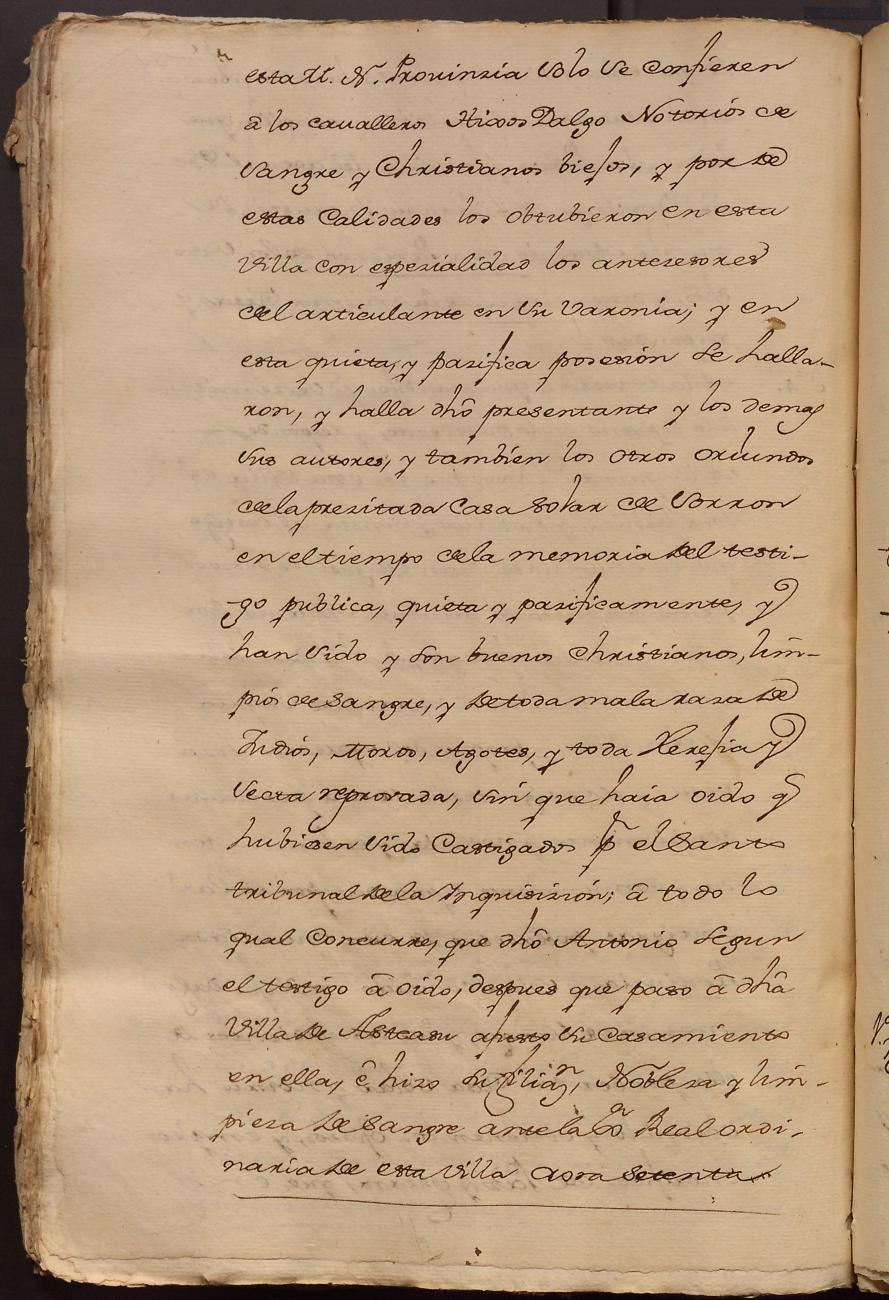 esta M. N. Prouinzia solo se confieren
â los caualleros Hixos Dalgo Notorios de
sangre y Christianos biejos, y por de
estas Calidades los obtubieron en esta
Villa con espezialidad los antezesores
del articulante en su Varonia; y en
esta quieta, y pazifica posesión se halla-
ron, y halla dho presentante y los demas
sus autores, y tambien los otros oriundos
de la prezitada Casa solar de Sorron
en el tiempo de la memoria del testi-
-go publica, quieta y pazificamente, y
han sido y son buenos Christianos, lim-
pios de sangre, y de toda mala raza de
Judios, Moros, Agotes, y toda Herejia y
secta reprovada, sin que haia oido q
hubiesen sido Castigados pr el Santo
tribunal de la Inquisizión; â todo lo
qual Concurre, que dho Antonio segun
el testigo â oido, despues que paso â dha
Villa de Asteasu ajusto su Casamiento
en ella, é hizo su filiazn, Nobleza y lim-
pieza de sangre ante la Real ordi-
naria de esta Villa aora setenta